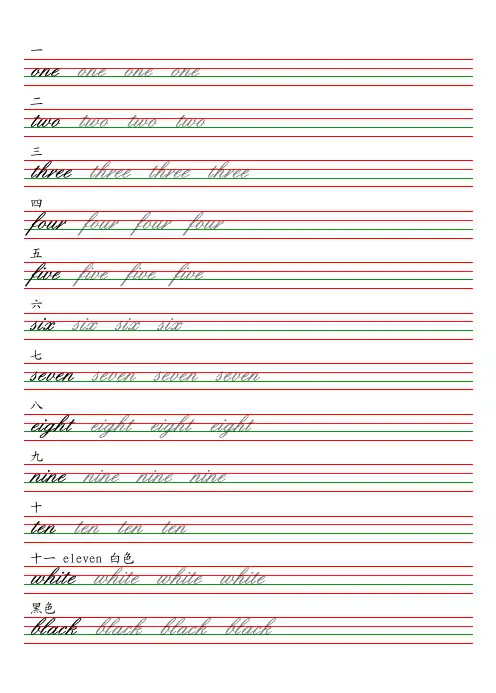 一
one one one one
二
two two two two
三
three three three three
四
four four four four
五
five five five five
六
six six six six
七
seven seven seven seven
八
eight eight eight eight
九
nine nine nine nine
十
ten ten ten ten
十一 eleven 白色
white white white white
黑色
black black black black